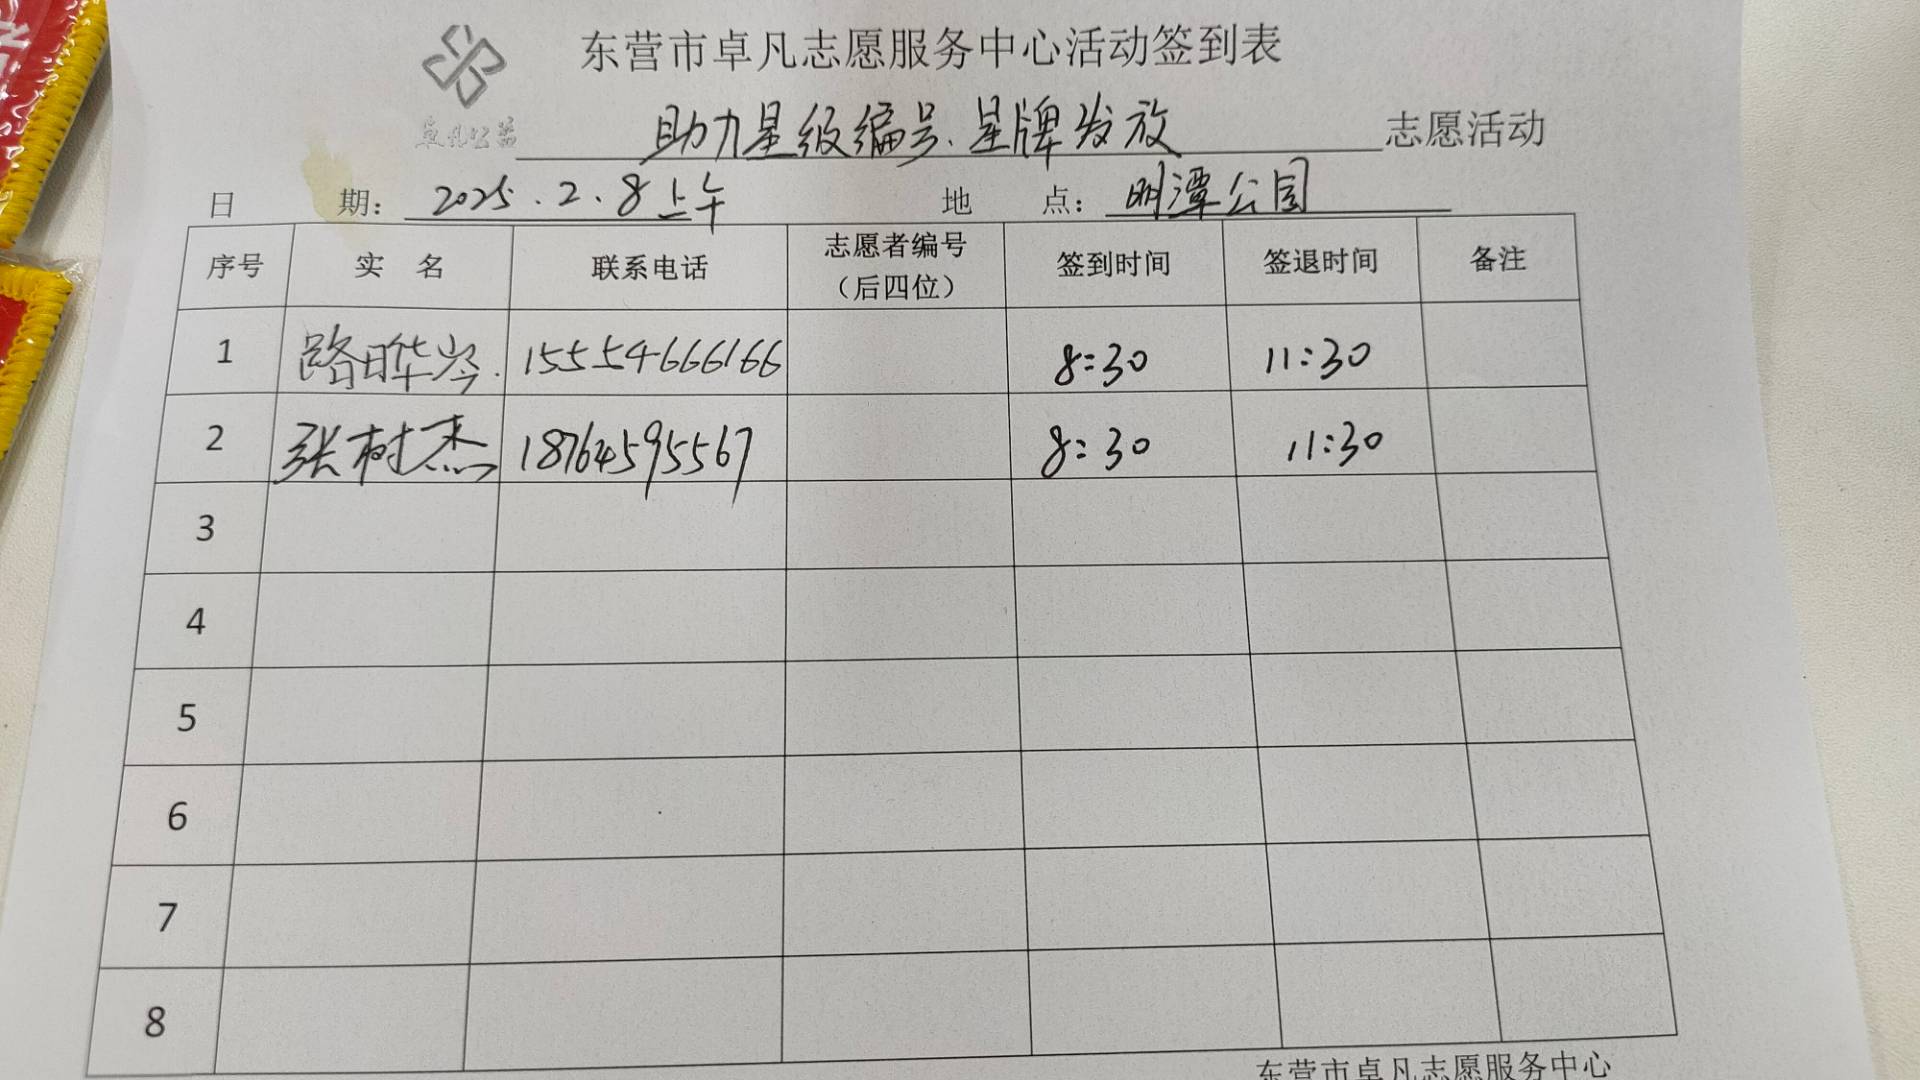 东营市卓凡志愿服务中心活动签到表
卓凡公益
助力星级编号、星牌发放 志愿活动
日 期: 2025.2.8上午 地 点: 明潭公园
序号 实 名 联系电话 志愿者编号（后四位） 签到时间 签退时间 备注
1 路晔岑 15554666166 8:30 11:30
2 张树杰 18764595567 8:30 11:30
3
4
5
6
7
8
东营市卓凡志愿服务中心